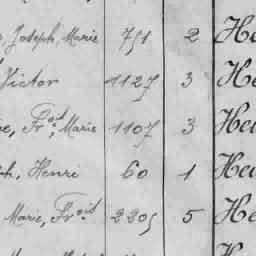 Joseph, Marie 751 2 He
Victor 1127 3 He
Fr.oit, Marie 1107 3 Hei
ph, Henri 60 1 Hei
Marie, Fr.oit 2205 5 He